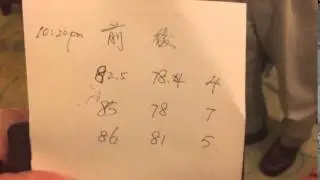 10:20pm 前 後
82.5 78.4 4
85 78 7
86 81 5